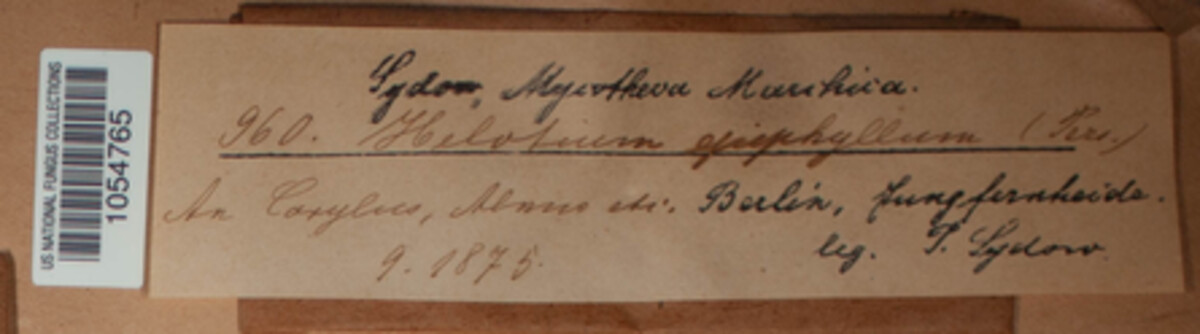 US NATIONAL FUNGUS COLLECTIONS
1054765
Sydow, Mycotheca Marchica.
960. Helotium epiphyllum (Pers.)
An Corylus, Alnus etc. Berlin, Jungfernheide.
9. 1875.
leg. P. Sydow